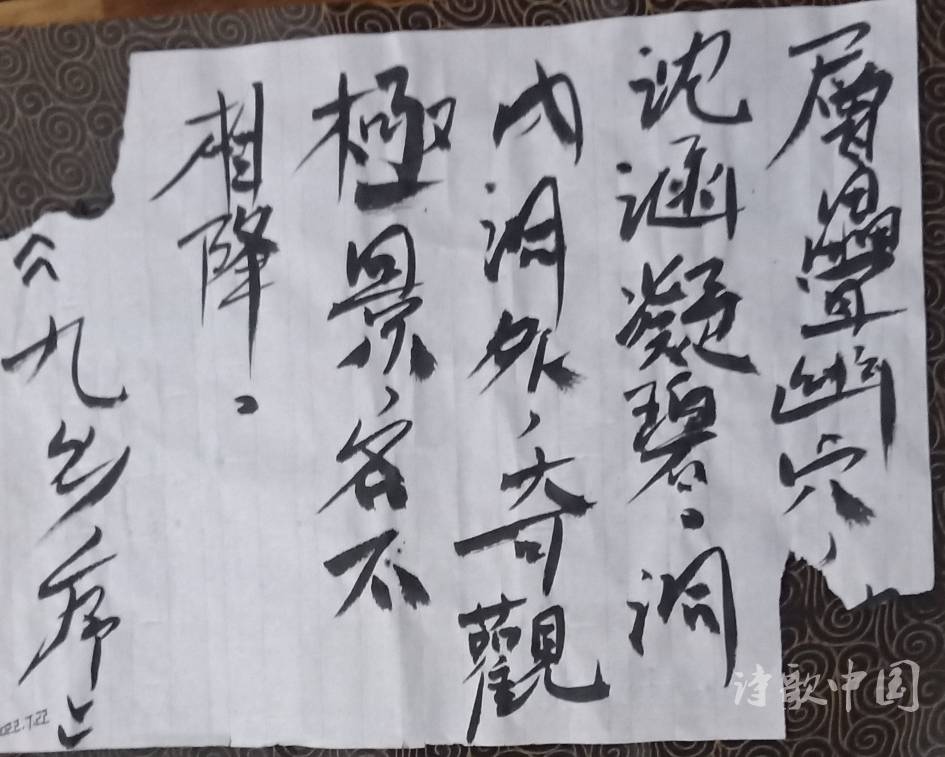 層疊幽穴、
沈涵凝碧。洞
内洞外、奇觀
極景、各不
相降。
《九乡序》
022.7.22
诗歌中国